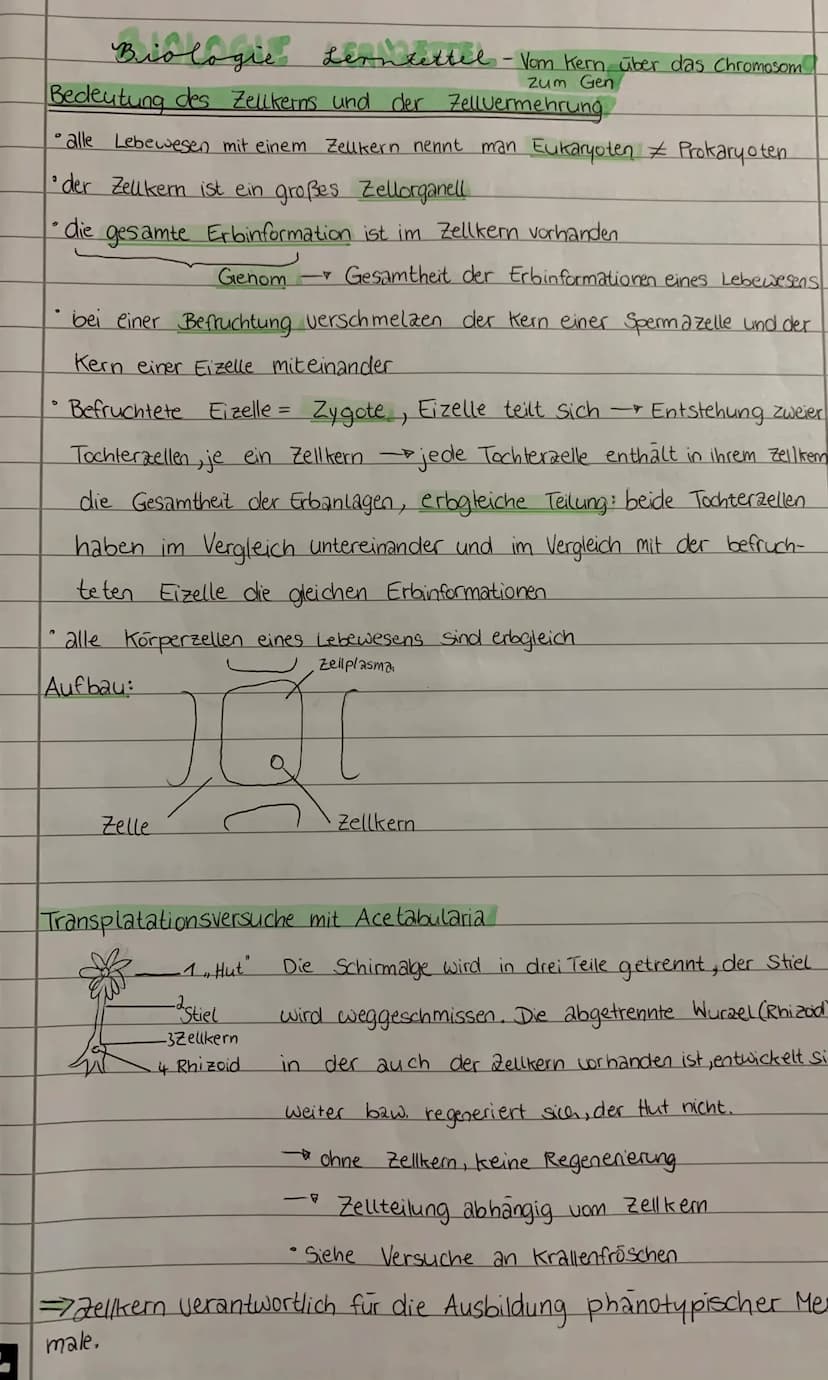 Biologie Lernzettel - Vom Kern über das Chromosom
zum Gen
Bedeutung des Zellkerns und der Zellvermehrung
• alle Lebewesen mit einem Zellkern nennt man Eukaryoten ≠ Prokaryoten
• der Zellkern ist ein großes Zellorganell
• die gesamte Erbinformation ist im Zellkern vorhanden
Genom → Gesamtheit der Erbinformationen eines Lebewesens
• bei einer Befruchtung verschmelzen der Kern einer Spermazelle und der
Kern einer Eizelle miteinander
• Befruchtete Eizelle = Zygote, Eizelle teilt sich → Entstehung zweier
Tochterzellen, je ein Zellkern → jede Tochterzelle enthält in ihrem Zellkern
die Gesamtheit der Erbanlagen, erbgleiche Teilung: beide Tochterzellen
haben im Vergleich untereinander und im Vergleich mit der befruch-
teten Eizelle die gleichen Erbinformationen
• alle Körperzellen eines Lebewesens sind erbgleich
Zellplasma
Aufbau:
Zelle
Zellkern
Transplatationsversuche mit Acetabularia
1 „Hut"
2 Stiel
3 Zellkern
4 Rhizoid
Die Schirmalge wird in drei Teile getrennt, der Stiel
wird weggeschmissen. Die abgetrennte Wurzel (Rhizoid)
in der auch der Zellkern vorhanden ist, entwickelt si
weiter bzw. regeneriert sich, der Hut nicht.
→ ohne Zellkern, keine Regenerierung
→ Zellteilung abhängig vom Zellkern
• Siehe Versuche an Krallenfröschen
⇒ Zellkern verantwortlich für die Ausbildung phänotypischer Me
male.